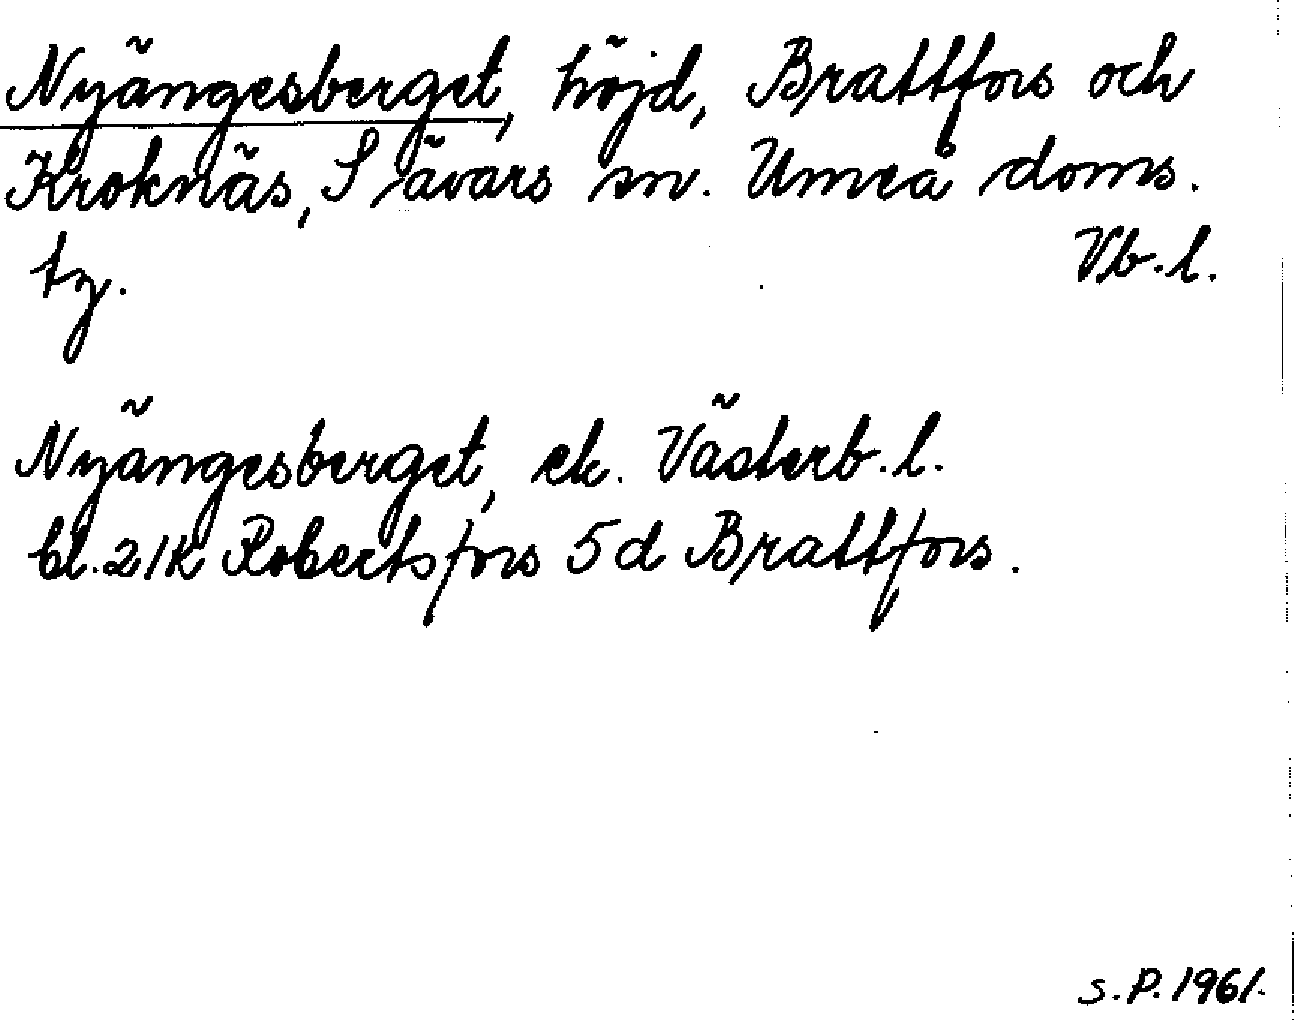 Nyängesberget, höjd, Brattfors och
Kroknäs, Sävars sn. Umeå doms.
tg. Vb.l.
Nyängesberget, ek. Västerb.l.
bl. 21K Robertsfors 5d Brattfors.
S.P. 1961.